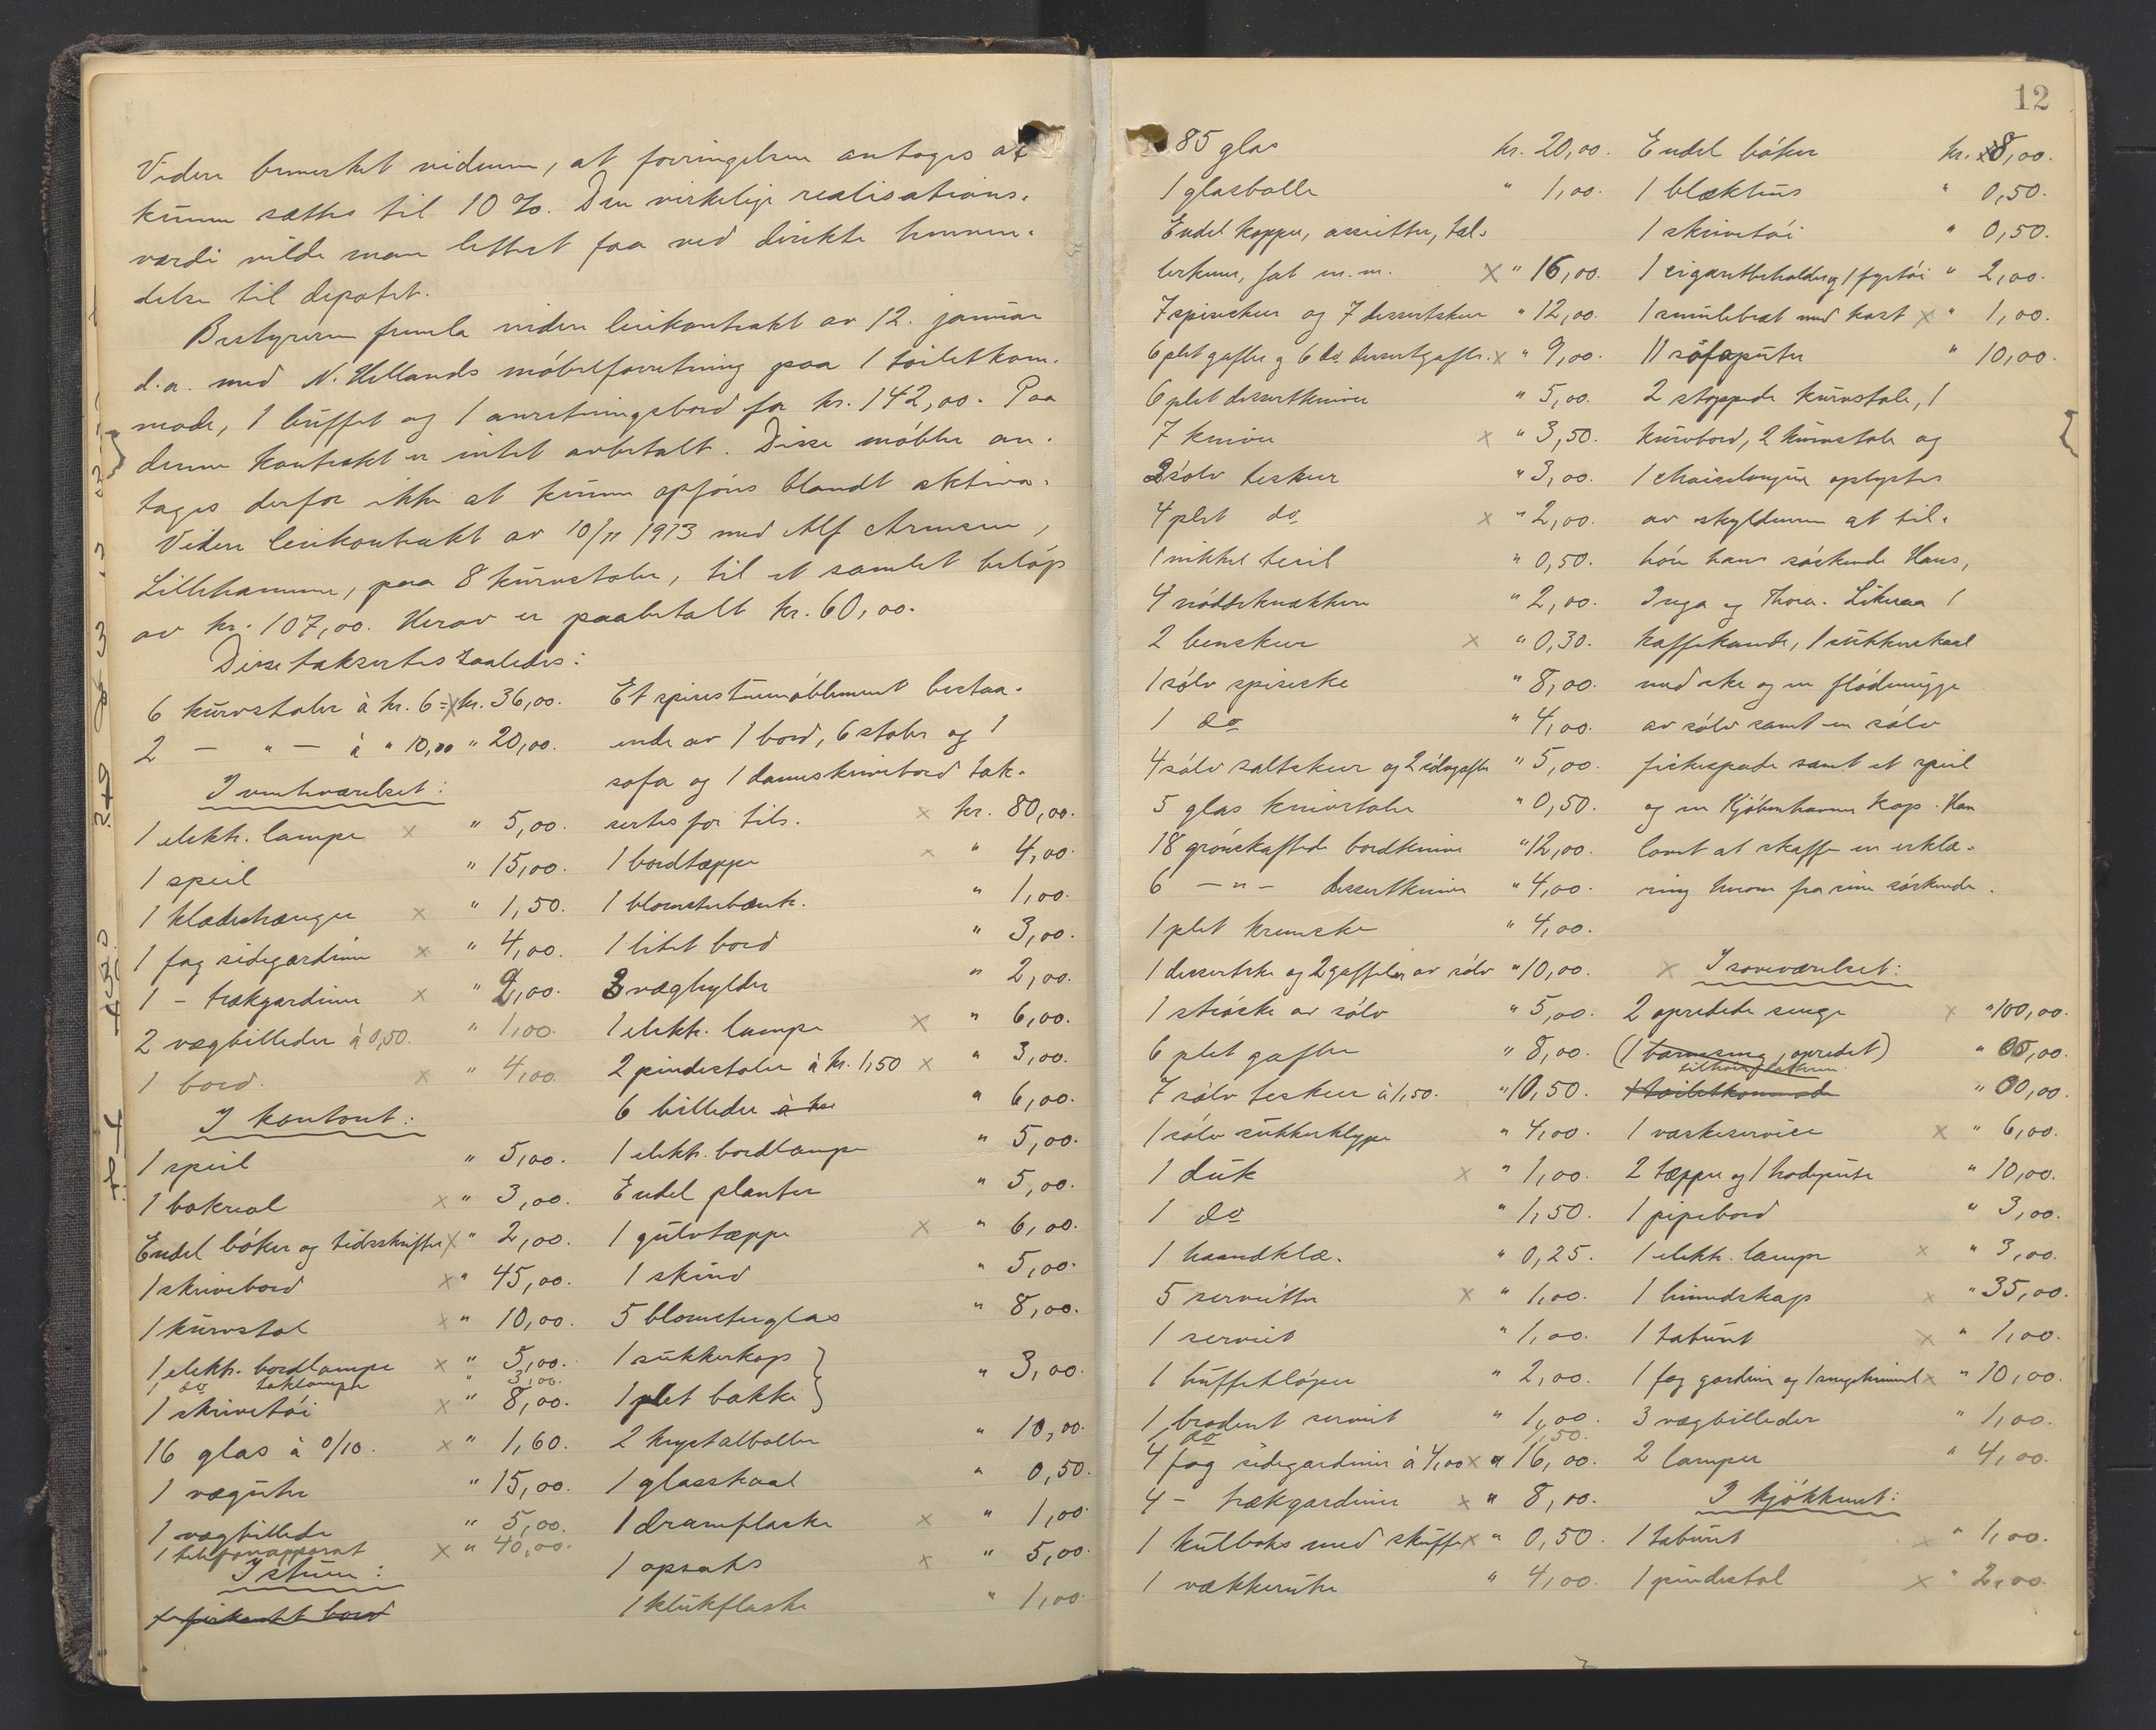 Videre bemerket vidnerne, at forringelsen antages at
kunne sættes til 10 %. Den virkelige realisations-
værdi vilde man lettest faa ved direkte henven-
delse til depotet.
Bestyreren fremla videre leiekontrakt av 12. januar
d.a. med N. Hellands møbelforretning paa 1 toiletkom-
mode, 1 buffet og 1 anretningsbord for kr. 142,00. Paa
denne kontrakt er intet avbetalt. Disse møbler an-
tages derfor ikke at kunne opføres blandt aktiva.
Videre leiekontrakt av 10/11 1913 med Alf Arnesen,
Lillehammer, paa 8 kurvstoler, til et samlet beløp
av kr. 107,00. Herav er paabetalt kr. 60,00.
Disse taksertes saaledes:
6 kurvstoler à kr. 6 = x kr. 36,00.
2 — " — à " 10,00 " 20,00.
I venteværelset:
1 elektr. lampe x " 5,00.
1 speil " 15,00.
1 klædeshænger x " 1,50.
1 fag sidegardiner x " 4,00.
1 - trækgardiner x " 2,00.
2 vægbilleder à 0,50. " 1,00.
1 bord. x " 4,00
I kontoret:
1 speil " 5,00.
1 bokreol x " 3,00.
Endel bøker og tidsskrifter x " 2,00.
1 skrivebord x " 45,00.
1 kurvstol x " 10,00.
1 elektr. bordlampe x " 5,00.
1 do taklampe " 3,00.
1 skrivetøi x " 8,00.
16 glas à 0/10. x " 1,60.
1 væguhr " 15,00.
1 vægbillede " 5,00.
1 telefonapparat x " 40,00.
I stuen:
1 firkantet bord
Et spisestuemøblement bestaa-
ende av 1 bord, 6 stoler og 1
sofa og 1 dameskrivebord tak-
sertes for tils. x kr. 80,00.
1 bordtæppe x " 4,00.
1 blomsterbænk. " 1,00.
1 litet bord " 3,00.
3 væghylder " 2,00.
1 elektr. lampe x " 6,00.
2 pindestoler à kr. 1,50 x " 3,00.
6 billeder à kr " 6,00.
1 elektr. bordlampe " 5,00.
Endel planter " 5,00.
1 gulvtæppe x " 6,00.
1 skind " 5,00.
5 blomsterglas " 8,00.
1 sukkerkop
1 plet bakke } " 3,00.
2 krystalboller " 10,00.
1 glasskaal " 0,50.
1 dramflaske x " 1,00
1 opsats x " 5,00
1 klukflaske " 1,00.
12
85 glas kr. 20,00.
1 glasbolle " 1,00.
Endel kopper, assietter, tal-
lerkener, fat m.m. x " 16,00.
7 spiseskeer og 7 dessertskeer " 12,00.
6 plet gafler og 6 do dessertgafler. x " 9,00.
6 plet dessertkniver " 5,00.
7 kniver x " 3,50.
3 sølv teskeer " 3,00.
4 plet do x " 2,00.
1 nikkel tesil " 0,50.
4 nøddeknækkere " 2,00.
2 benskeer x " 0,30.
1 sølv spiseske " 8,00.
1 do " 4,00.
4 sølv saltskeer og 2 sølvgafler " 5,00.
5 glas knivstoler " 0,50.
18 grønskaftede bordkniver " 12,00.
6 — " — dessertkniver " 4,00.
1 plet kremske " 4,00.
1 dessertske og 2 gaffeler av sølv " 10,00.
1 strøske av sølv " 5,00.
6 plet gafler " 8,00.
7 sølv teskeer à 1,50. " 10,50.
1 sølv sukkerklype " 4,00.
1 duk x " 1,00.
1 do " 1,50.
1 haandklæ. " 0,25.
5 servietter x " 1,00.
1 serviet " 1,00.
1 buffetløper " 2,00.
1 brodert serviet " 1,00.
1 do 1,50.
4 fag sidegardiner à 4,00 x " 16,00.
4 - trækgardiner x " 8,00.
1 kulboks med skuffe x " 0,50.
1 vækkeruhr " 4,00.
Endel bøker kr. 8,00.
1 blækhus " 0,50.
1 skrivetøi " 0,50.
1 cigaretbeholder og 1 fyrtøi " 2,00.
1 smulebræt med kost x " 1,00.
11 sofaputer " 10,00.
2 stoppede kurvstole, 1
kurvbord, 2 kurvstole og
1 chaiselongue oplystes
av skyldneren at til-
høre hans søskende Hans,
Inga og Thora. Likesaa 1
kaffekande, 1 sukkerskaal
med ske og en flødemugge
av sølv samt en sølv
fiskespade samt et speil
og en Kjøbenhavner kop. Han
lovet at skaffe en erklæ-
ring herom fra sine søskende.
x I soveværelset:
2 opredede senge x " 100,00.
(1 barneseng, opredet) " 00,00.
1 toiletkommode " 00,00.
1 vaskeservice x " 6,00.
2 tæpper og 1 hodepute " 10,00.
1 pipebord " 3,00.
1 elektr. lampe x " 3,00.
1 linnedskap x " 35,00.
1 taburet x " 1,00.
1 fag gardiner og 1 sengehimmel x " 10,00.
3 vægbilleder " 1,00.
2 lamper " 4,00.
I kjøkkenet:
1 taburet x " 1,00.
1 pindestol x " 2,00.